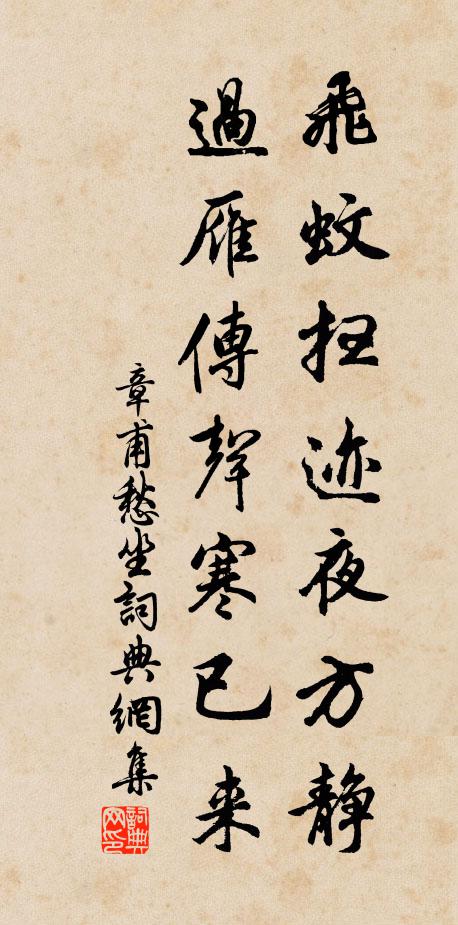 飛蚊扫迹夜方静
過雁傳聲寒已来
章甫愁坐詞典網集
詞典网印